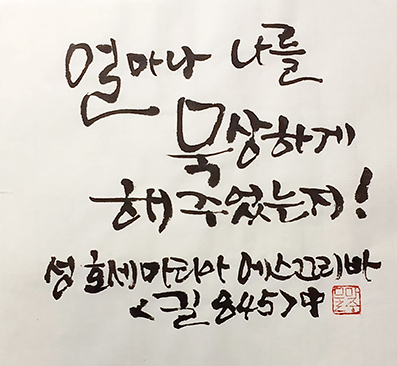 얼마나 나를
묵상하게
해 주었는지!
성 호세마리아 에스크리바
<길 845> 中